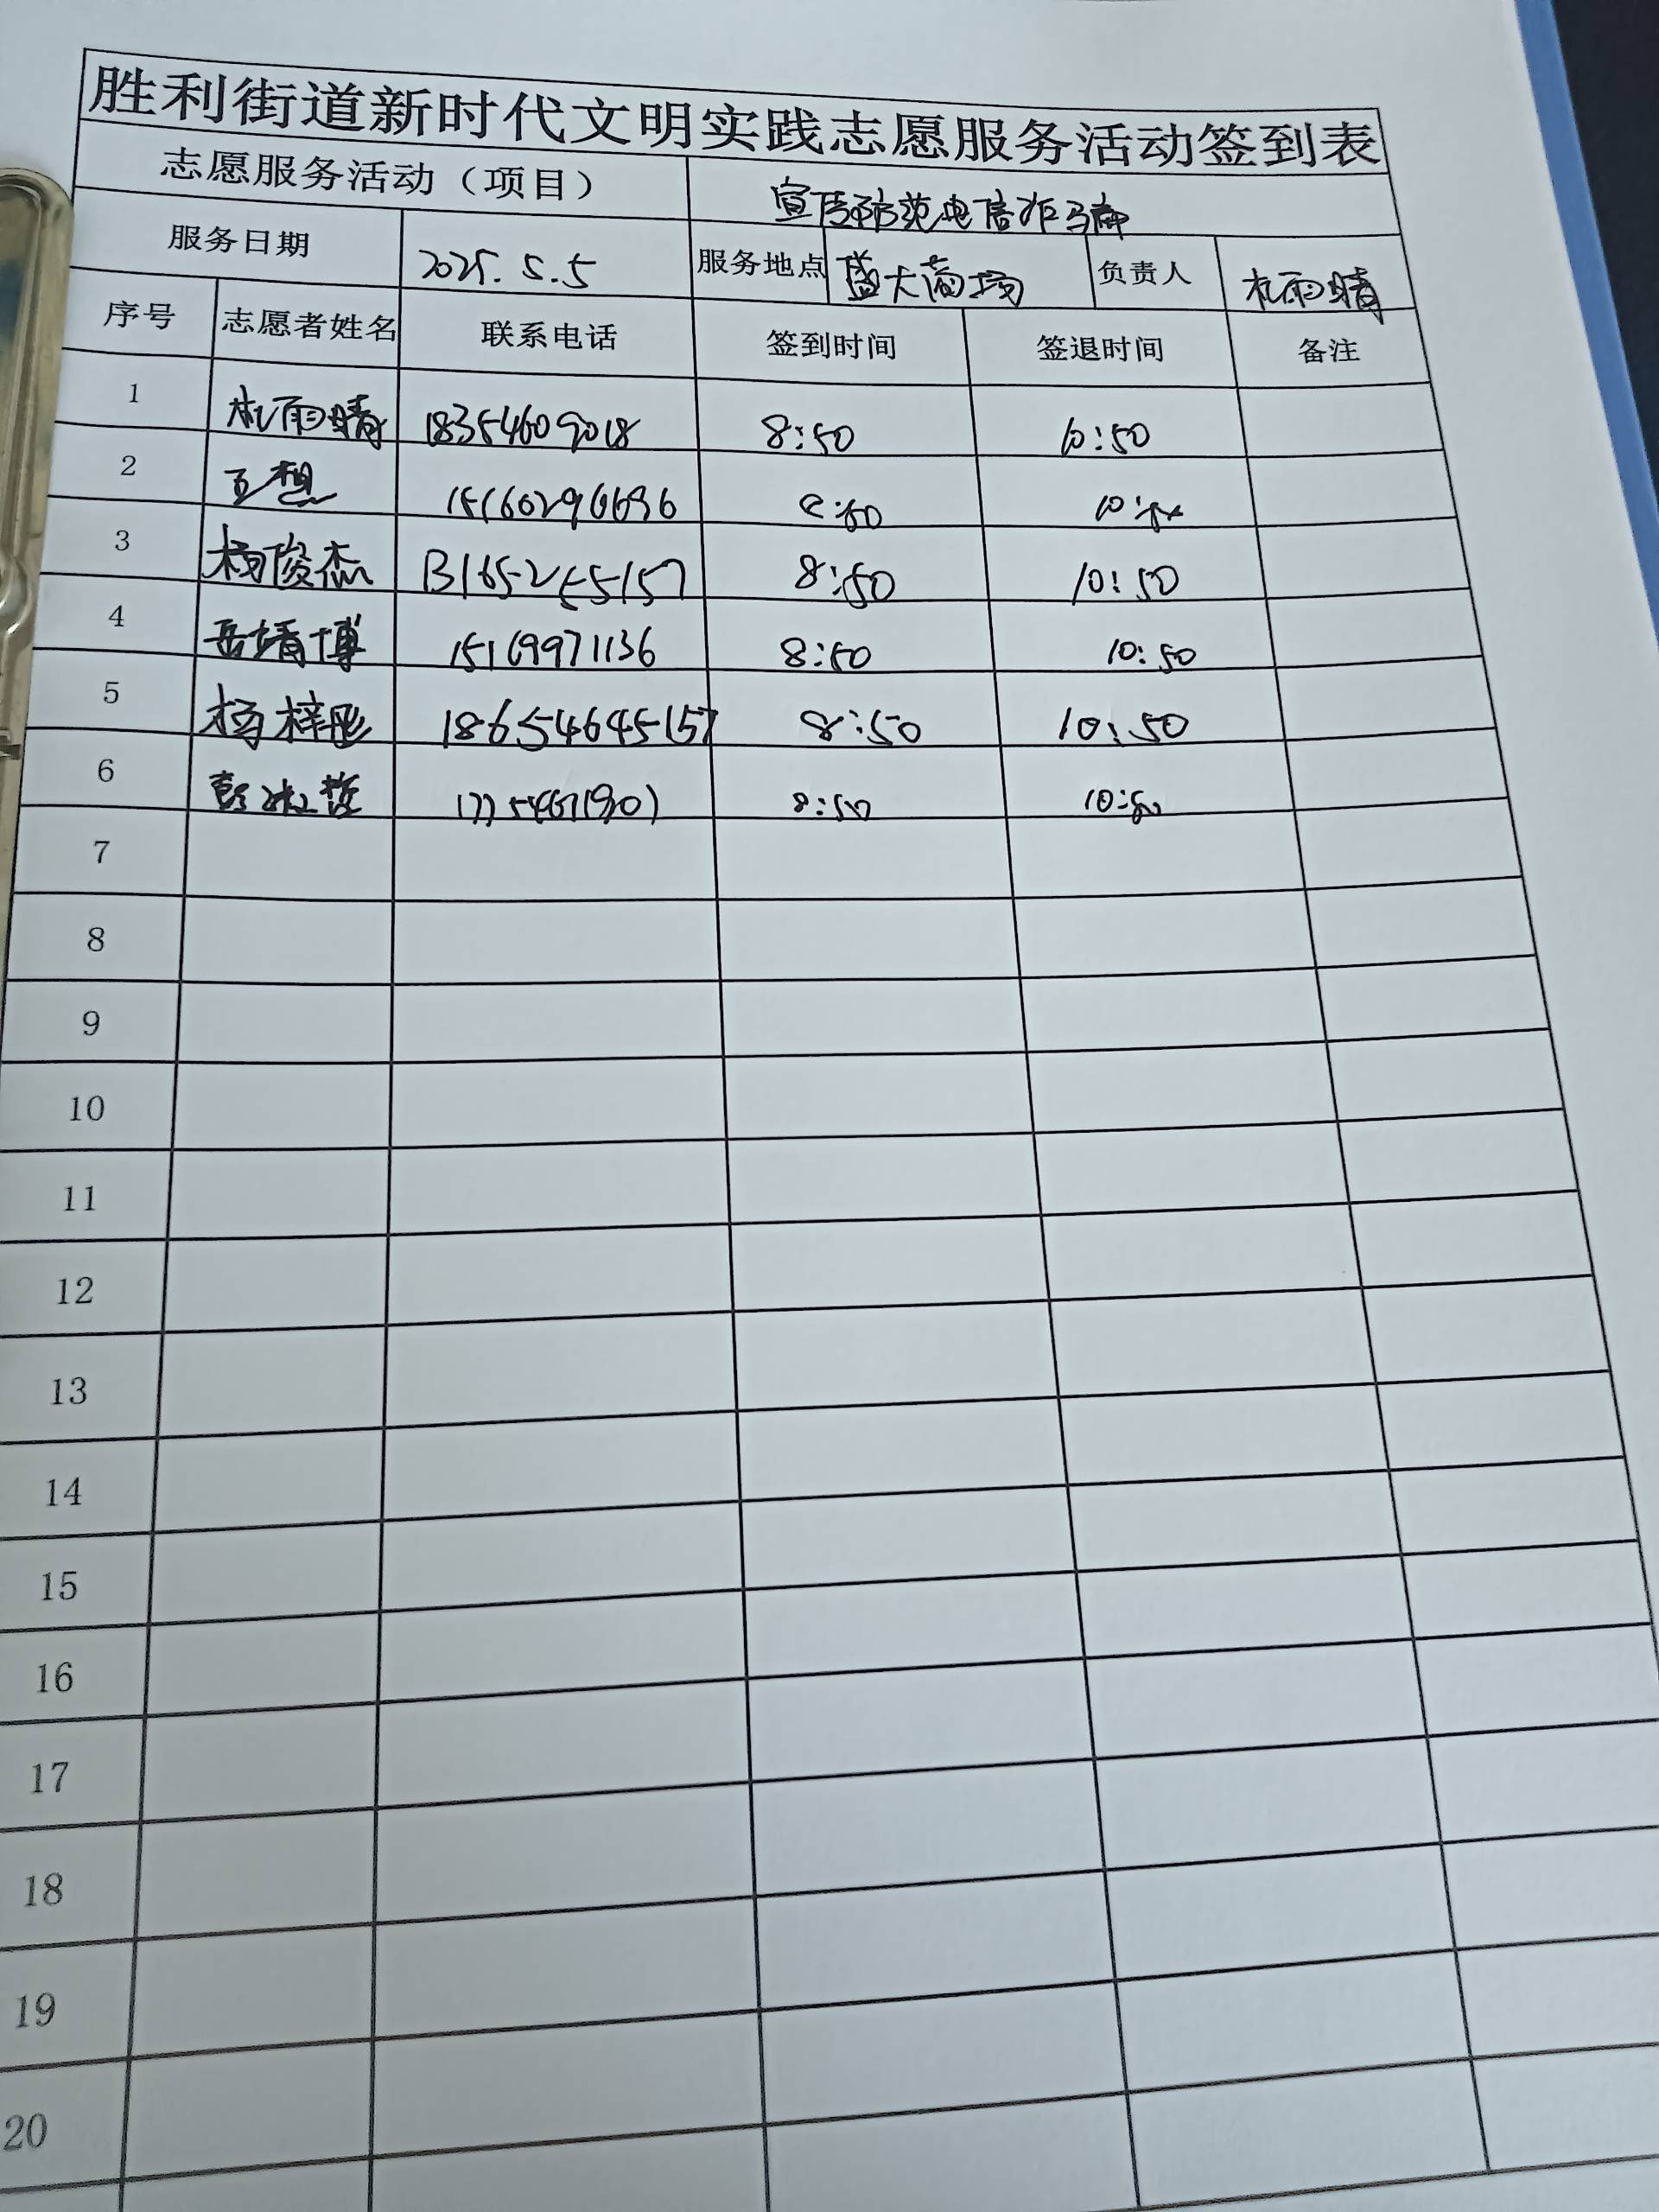 胜利街道新时代文明实践志愿服务活动签到表
志愿服务活动（项目） 宣传防范电信诈骗
服务日期 2025.5.5 服务地点 盛大商场 负责人 杜雨晴
序号 志愿者姓名 联系电话 签到时间 签退时间 备注
1 杜雨晴 18354609018 8:50 10:50
2 王想 8:50 10:50
3 杨俊杰 13165255157 8:50 10:50
4 岳靖博 15169971136 8:50 10:50
5 杨梓彤 18654645157 8:50 10:50
6 8:50 10:50
7
8
9
10
11
12
13
14
15
16
17
18
19
20